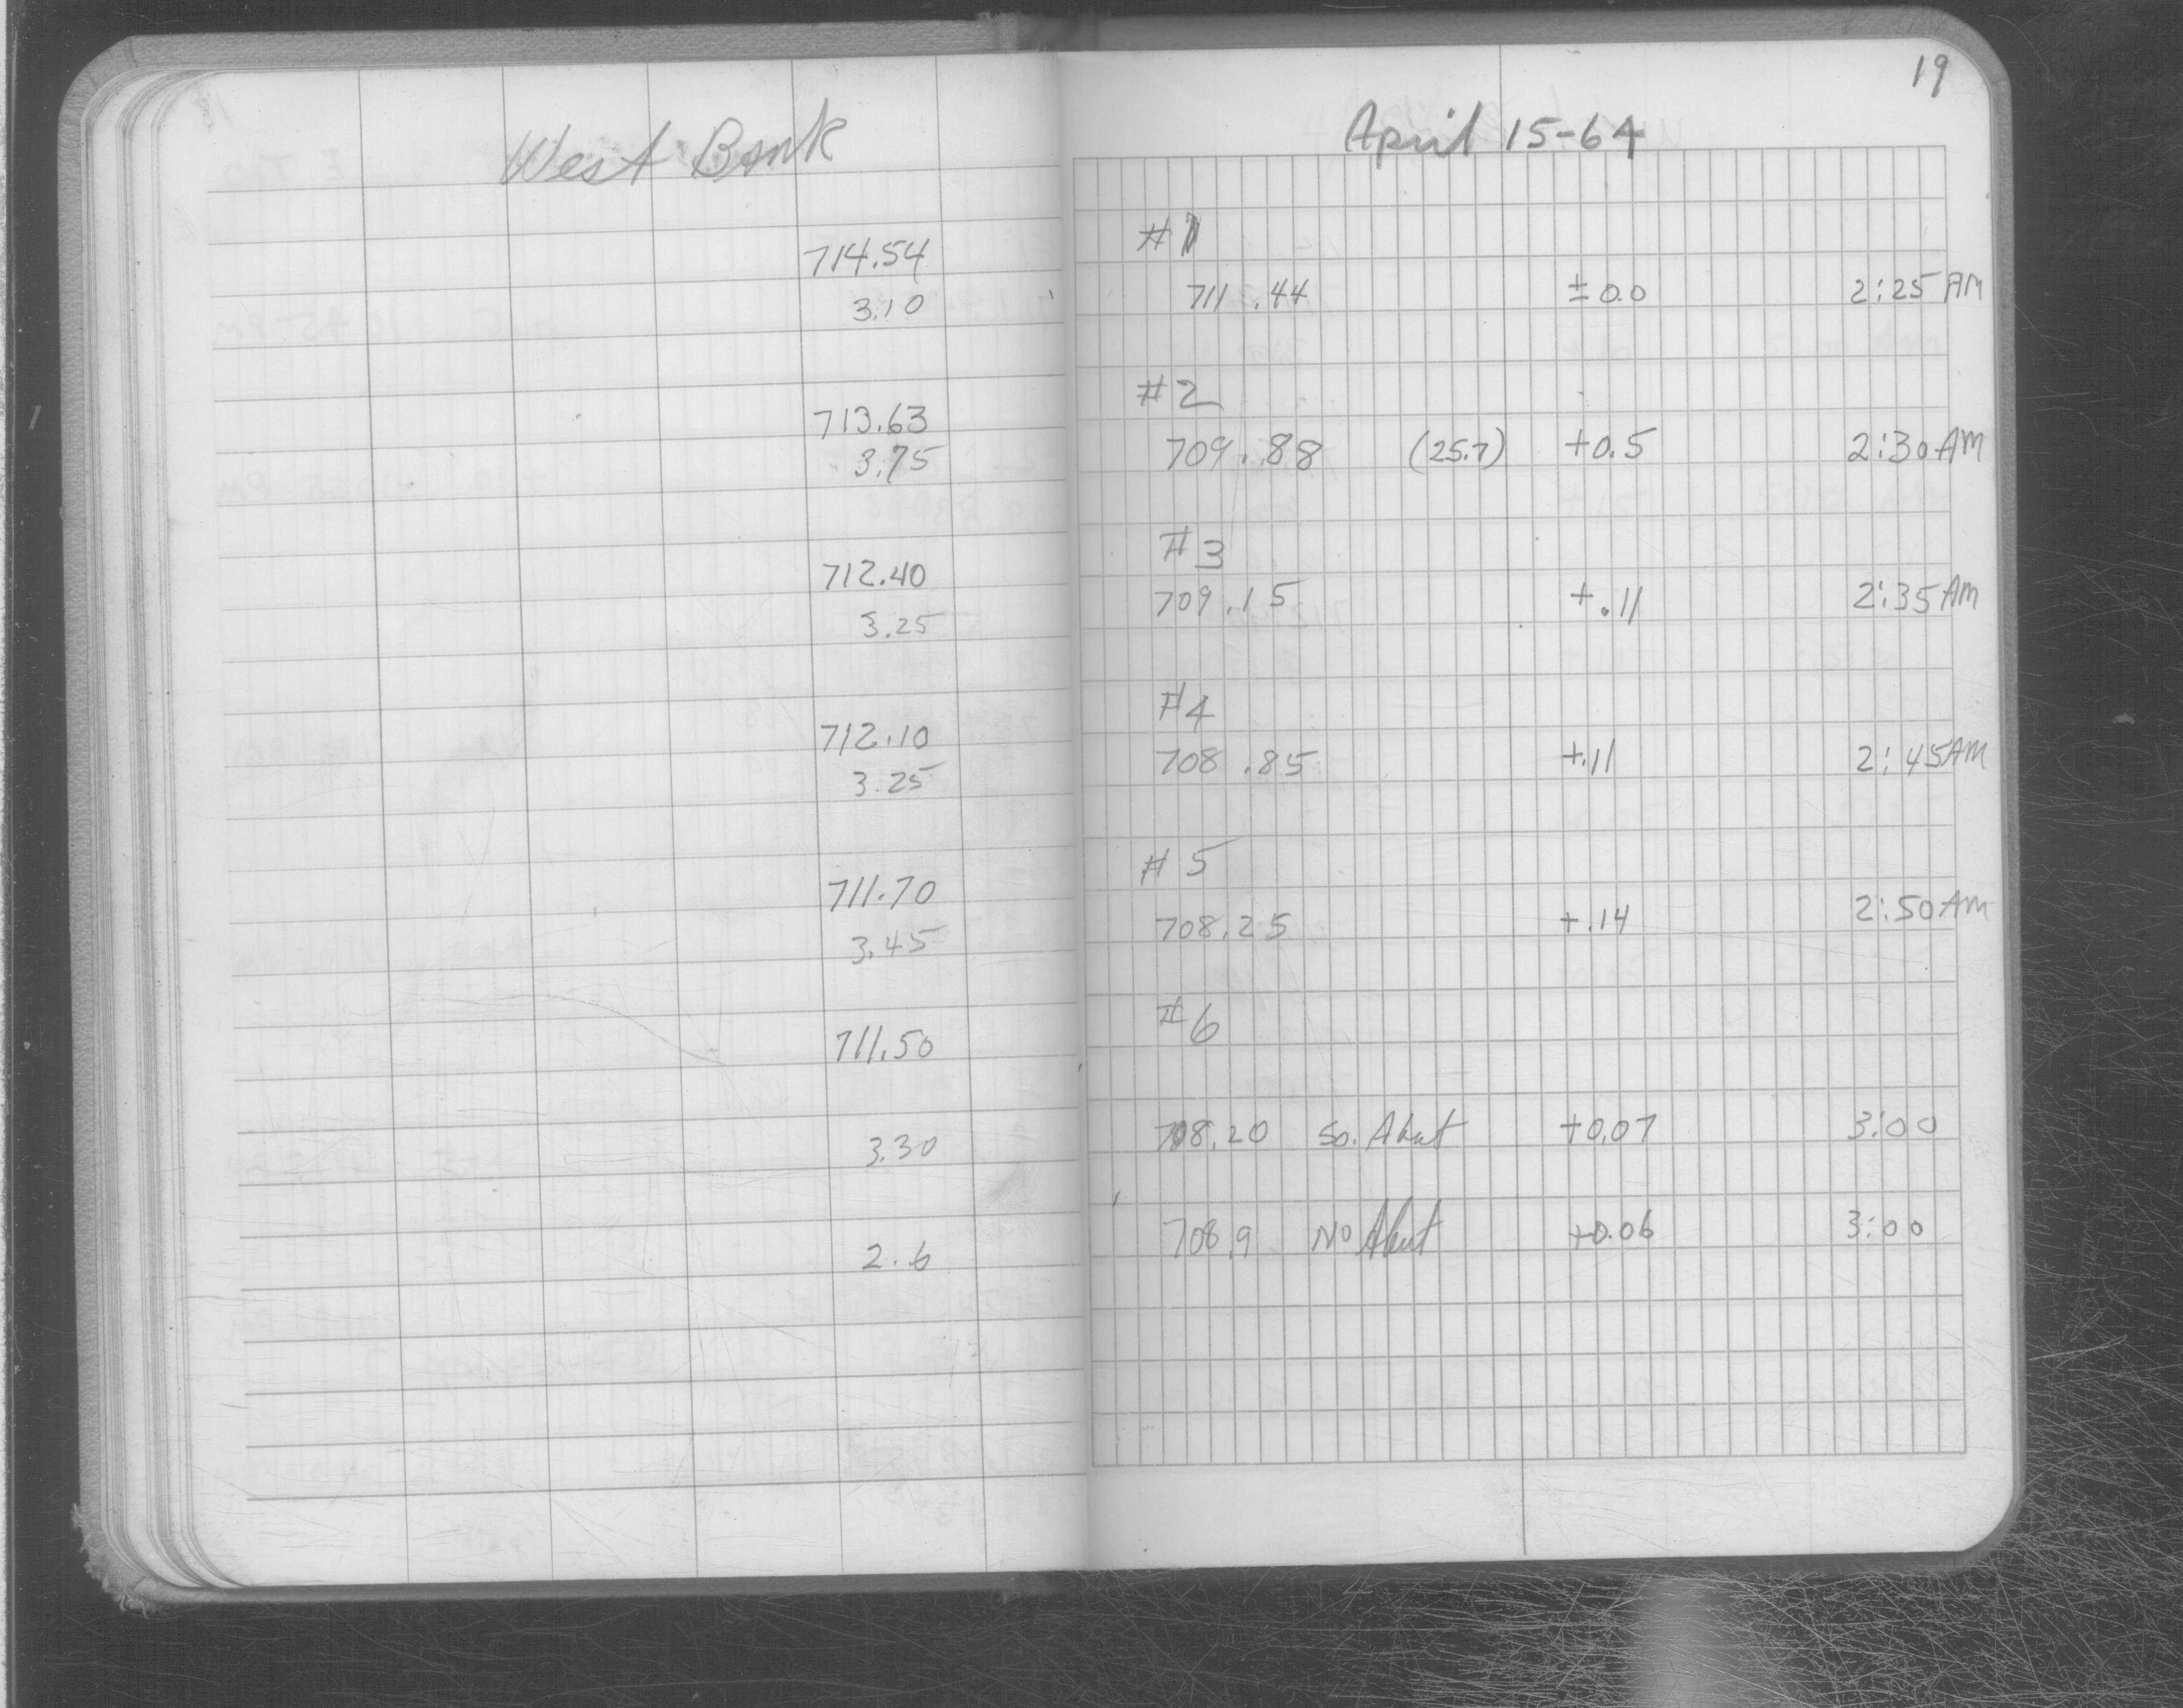 West Bank
714.54
3.10
713.63
3.75
712.40
3.25
712.10
3.25
711.70
3.45
711.50
3.30
2.6
19
April 15-64
#1
711.44 ±0.0 2:25 AM
#2
709.88 (25.7) +0.5 2:30 AM
#3
709.15 +.11 2:35 AM
#4
708.85 +.11 2:45 AM
#5
708.25 +.14 2:50 AM
#6
708.20 So. Abut +0.07 3:00
708.9 No Abut +0.06 3:00